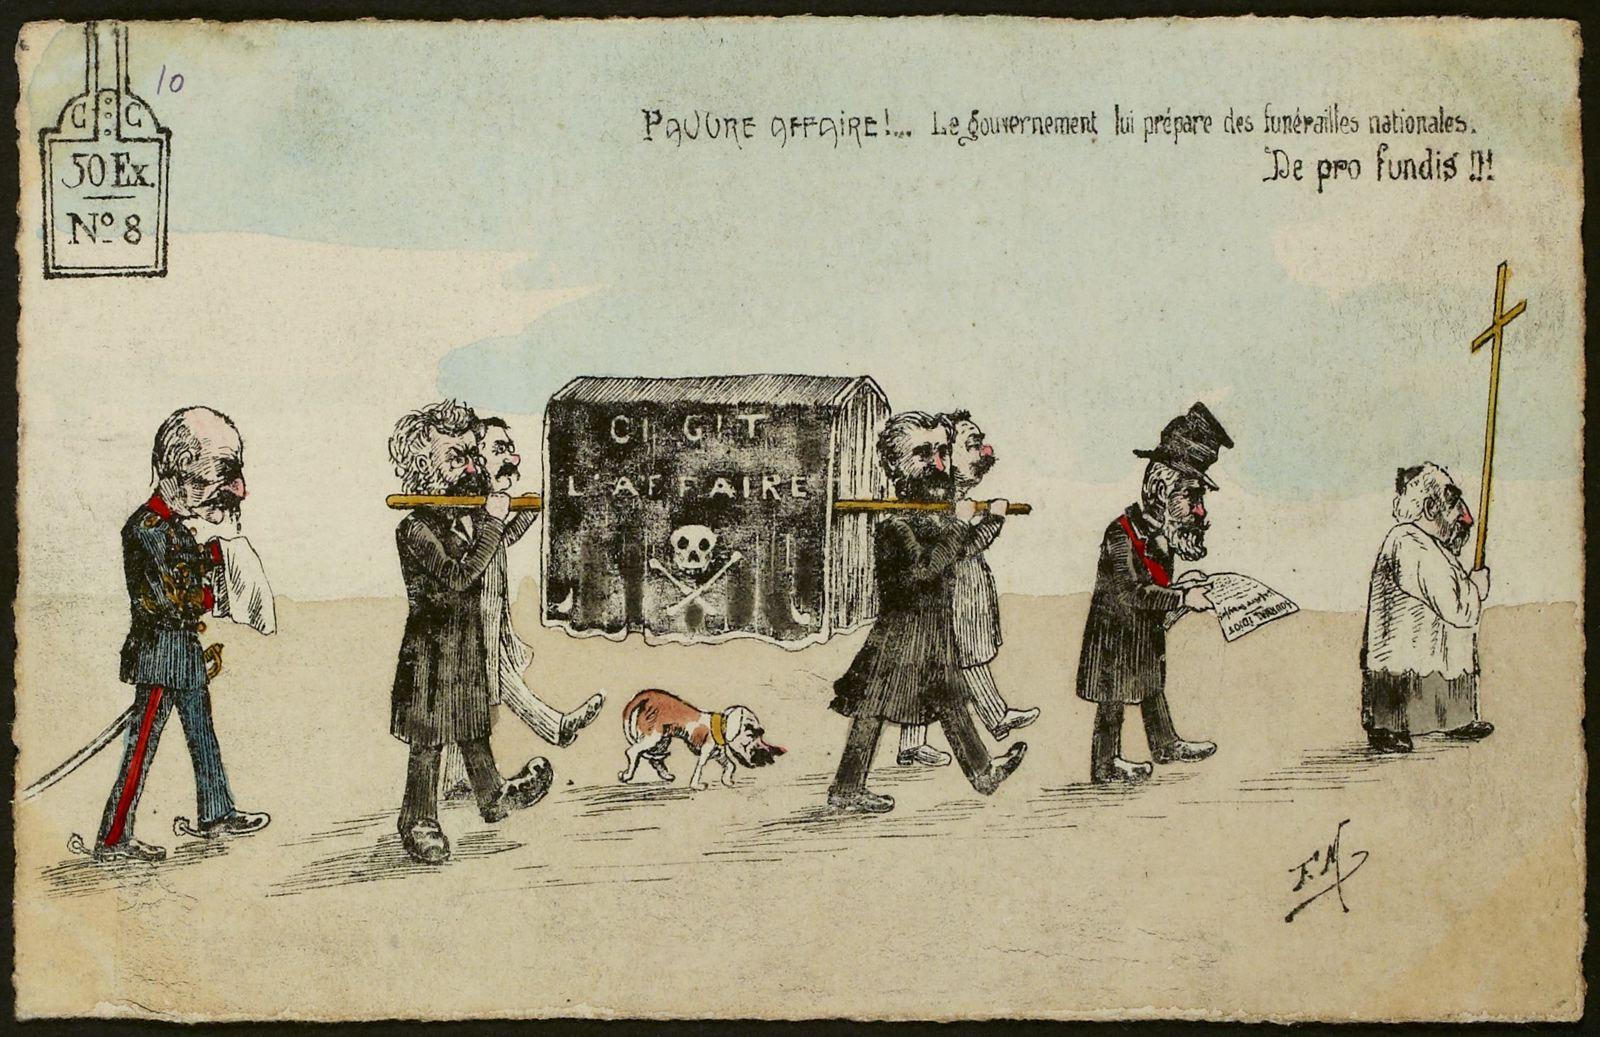 10
C C
50 Ex.
Nº 8
PAUVRE AFFAIRE!... Le gouvernement lui prépare des funérailles nationales.
De pro fundis !!!
CI GIT
L'AFFAIRE
JOURNAL IDIOT
F.M